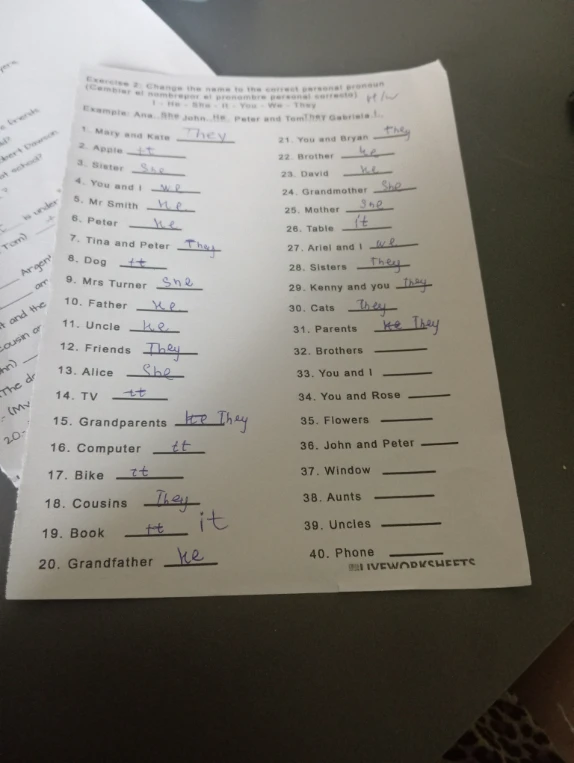 Exercise 2: Change the name to the correct personal pronoun
(Cambiar el nombrepor el pronombre personal correcto)
I - He - She - It - You - We - They
Example: Ana She John He Peter and Tom They Gabriela
1. Mary and Kate They
2. Apple it
3. Sister She
4. You and I we
5. Mr Smith He
6. Peter He
7. Tina and Peter They
8. Dog it
9. Mrs Turner She
10. Father He
11. Uncle He
12. Friends They
13. Alice She
14. TV it
15. Grandparents He They
16. Computer it
17. Bike it
18. Cousins They
19. Book it it
20. Grandfather He
21. You and Bryan they
22. Brother he
23. David he
24. Grandmother She
25. Mother She
26. Table it
27. Ariel and I we
28. Sisters They
29. Kenny and you They
30. Cats They
31. Parents He They
32. Brothers
33. You and I
34. You and Rose
35. Flowers
36. John and Peter
37. Window
38. Aunts
39. Uncles
40. Phone
LIVEWORKSHEETS